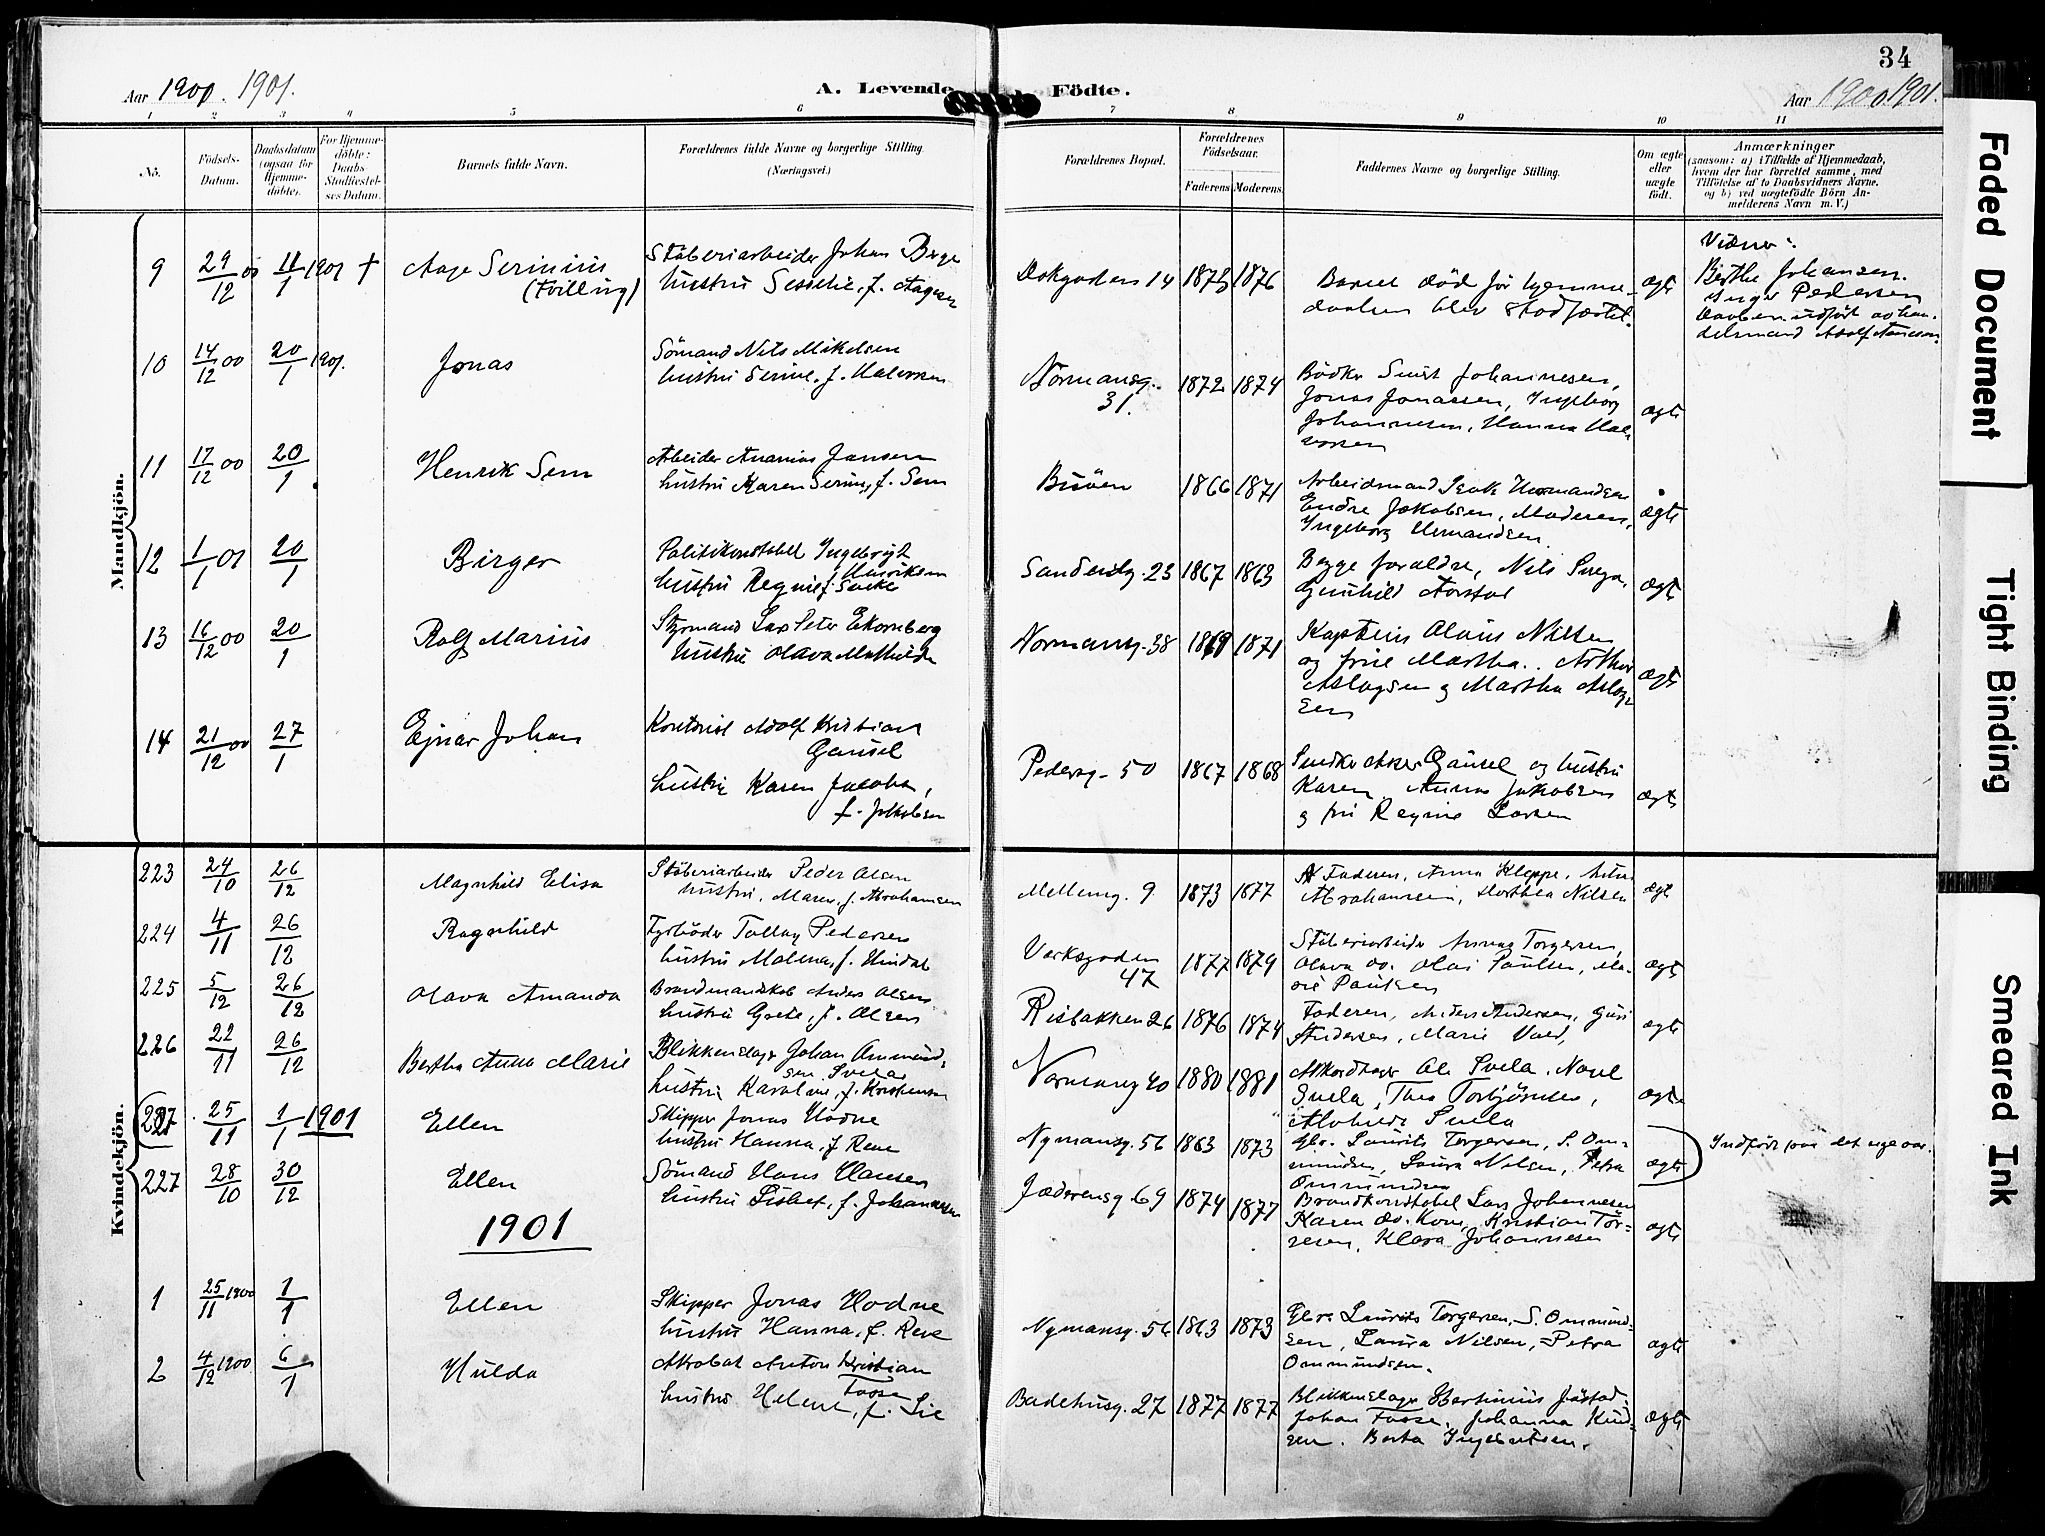 34
Aar 1900. 1901.
A. Levende Födte.
Aar 1900 1901.
1 2 3 4 5 6 7 8 9 10 11
No.
Födsels-
Datum.
Daabsdatum
(ogsaa for
Hjemme-
döbte).
For Hjemme-
döbte:
Daabs-
Stadfæstel-
ses Datum.
Barnets fulde Navn.
Forældrenes fulde Navne og borgerlige Stilling
(Næringsvei.)
Forældrenes Bopæl.
Forældrenes
Födselsaar.
Faderens Moderens
Faddernes Navne og borgerlige Stilling.
Om ægte
eller
uægte
födt.
Anmærkninger
(saasom: a) i Tilfælde af Hjemmedaab,
hvem der har forrettet samme, med
Tilföielse af to Daabsvidners Navne,
og b) ved uægtefödte Börn An-
melderens Navn m. V.)
Mandkjön.
9 29/12 00 11/1 1901 † Aage Serinius
(tvilling)
Stöberiarbeider Johan Berge
hustru Sesselie, f. Aagesen
Dokgaden 14 1873 1876
Barnet död för hjemme-
daaben blev stadfæstet.
ægte
Vidner:
Berthe Johansen.
Inger Pedersen
Daaben udfört av han-
delsmand Adolf
10 14/12 00 20/1 1901. Jonas
Sömand Nils Mikelsen
hustru Serine, f. Halvorsen
Normansg. 31. 1872 1874
Bödker Johannesen,
Jonas Jonassen, Ingeborg
Johannesen, Hanna Hal-
vorsen
ægte
11 17/12 00 20/1 Henrik Sem
Arbeider Ananias Jansen
hustru Karen Serine, f. Sem
Buöen 1866 1871
Arbeidsmand Isak Hermandsen
Endre Jakobsen, Moderen,
Ingeborg Hermandsen
ægte
12 1/1 01 20/1 Birger
Politikonstabel Ingebrigt
Henriksen
hustru Regine f.
Sandeidg. 23 1867 1863
Begge forældre, Nils
Gunhild
ægte
13 16/12 00 20/1 Rolf Marius
Styrmand Lars Peter Ekornberg
hustru Olava Mathilde
Normansg. 38 1869 1871
Kaptein Olaus Nilsen
og frue Martha. Arthur
Aslagsen og Martha Aslag-
sen
ægte
14 21/12 00 27/1 Ejnar Johan
Kontorist Adolf Kristian
Gausel
hustru Karen Jacoba,
f. Jakobsen
Pedersg. 50 1867 1868
Snedker Gausel og hustru
Karen. Jakobsen
og fru Regine Larsen
ægte
Kvindekjön.
223 24/10 26/12 Magnhild Elisa
Stöberiarbeider Peder Olsen
hustru, Maren, f. Abrahamsen
Mellemg. 9 1873 1877
Faderen, Anna Kleppe,
Abrahamsen, Dorthea Nilsen
ægte
224 4/11 26/12 Ragnhild
Fyrböder Tollag Pedersen
hustru Malena, f. Hindal
Verksgaden 47 1877 1879
Stöberiarbeider Torgersen,
Olava do. Olai Paulsen, Ma-
rie Paulsen
ægte
225 5/12 26/12 Olava Amanda
Brandmandskab Anders Olsen
hustru Grete, f. Olsen
Risbakken 26 1876 1874
Faderen, Anders Andersen, Guri
Andersen, Marie
ægte
226 22/11 26/12 Bertha Anna Marie
Blikkenslager Johan Ommund-
sen Svela
hustru Karoline, f. Kristensen
Normansg 40 1880 1881
Akkordtager Ole Svela.
Svela, Thea Torbjörnsen,
Svela
ægte
227 25/11 1/1 1901 Ellen
Skipper Jonas Hodne
hustru Hanna, f Reve
Nymansg. 56 1863 1873
Laurits Torgersen, S. Om-
mundsen, Laura Nilsen, Petra
Ommundsen
ægte
Indfört paa det nye aar.
227 28/10 30/12 Ellen
Sömand Hans Hansen
hustru Lisbet, f. Johannesen
Jæderensg 69 1874 1877
Brandkonstabel Lars Johannesen
Karen do. Kone, Kristian Tor-
resen, Klara Johannesen
ægte
1901
1 25/11 1900 1/1 Ellen
Skipper Jonas Hodne
hustru Hanna, f. Reve
Nymansg. 56 1863 1873
Laurits Torgersen, S. Ommund-
sen, Laura Nilsen, Petra
Ommundsen.
ægte
2 4/12 1900 6/1 Hulda
Akrobat Anton Kristian
Fosse
hustru Helene, f. Lie
Badehusg. 27 1877 1877
Blikkenslager Martinius
Johan Fosse, Johanna Knud-
sen. Berta Ingebretsen.
ægte
Faded Document
Tight Binding
Smeared Ink